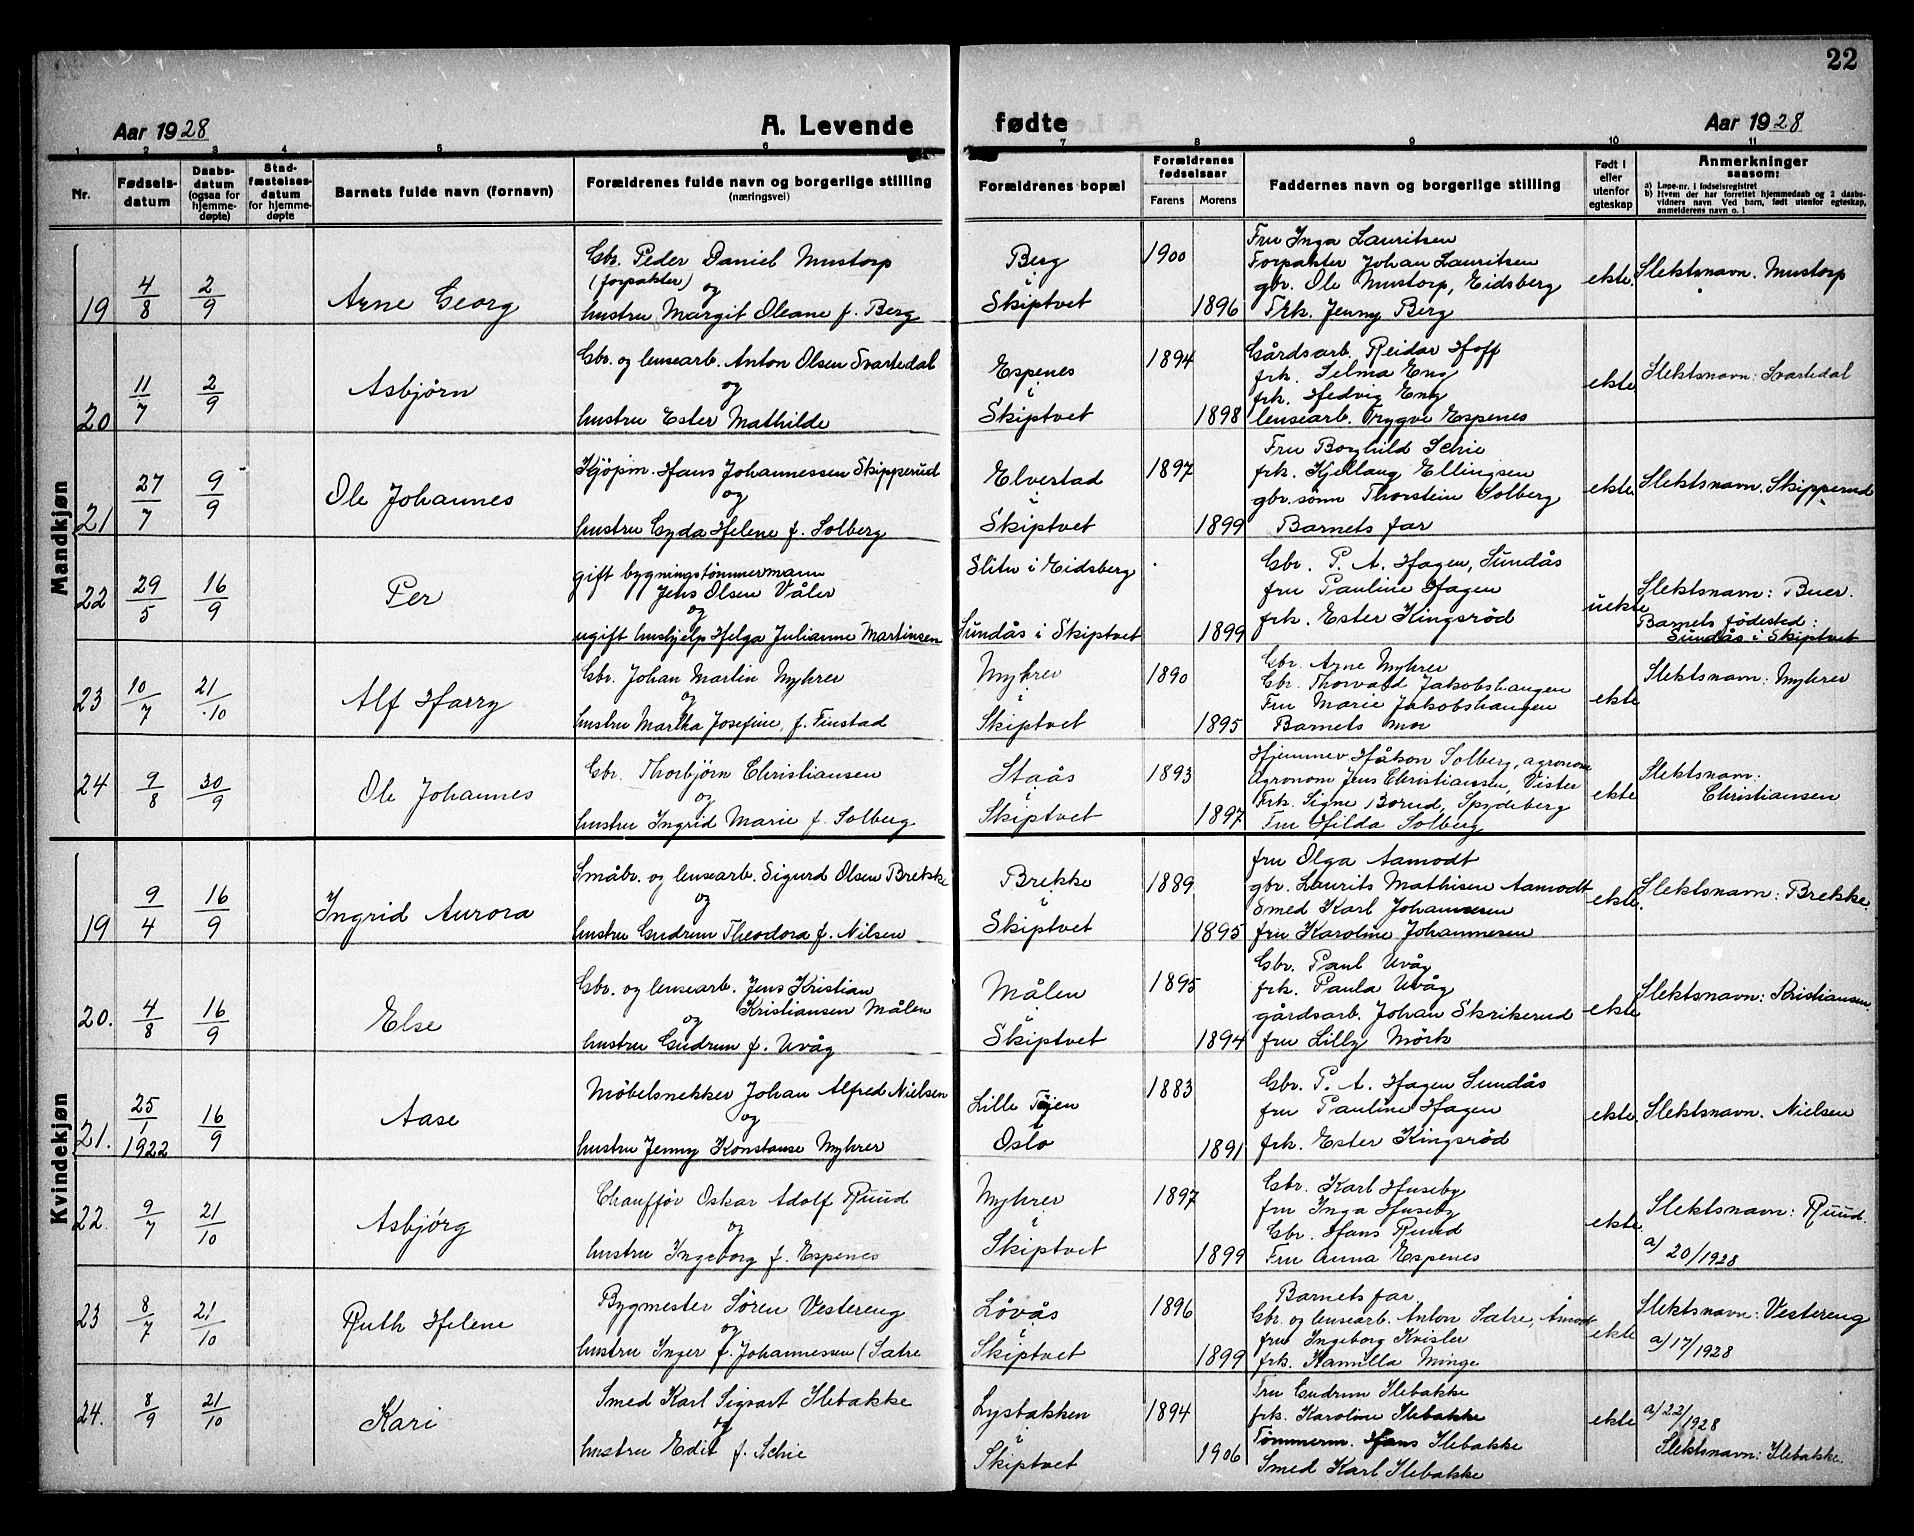 22
Aar 1928
A. Levende
fødte
Aar 1928
1 2 3 4 5 6 7 8 9 10 11
Nr.
Fødsels-
datum
Daabs-
datum
(ogsaa for
hjemme-
døpte)
Stad-
fæstelses-
datum
for hjemme-
døpte
Barnets fulde navn (fornavn)
Forældrenes fulde navn og borgerlige stilling
(næringsvei)
Forældrenes bopæl
Forældrenes
fødselsaar
Farens Morens
Faddernes navn og borgerlige stilling
Født i
eller
utenfor
egteskap
Anmerkninger
saasom:
a) Løpe-nr. i fødselsregistret
b) Hvem der har forrettet hjemmedaab og 2 daabs-
vidners navn. Ved barn, født utenfor egteskap,
anmelderens navn o. l
Mandkjøn
19 4/8 2/9 Arne Georg
Gbr. Peder Daniel Mustorp
(forpakter) og
hustru Margit Oleane f. Berg
Berg
i
Skiptvet
1900
1896
Fru Inga Lauritsen
Forpakter Johan Lauritsen
gbr. Ole Mustorp, Eidsberg
Frk. Jenny Berg
ekte.
Slektsnavn. Mustorp
20 11/7 2/9 Asbjørn
Gbr. og lensearb. Anton Olsen Svartedal
og
hustru Ester Mathilde
Espenes
i
Skiptvet
1894
1898
Gårdsarb. Reidar Hoff
frk. Selma Eng
frk. Hedvig Eng
lensearb. Trygve Espenes
ekte
Slektsnavn: Svartedal
21 27/7 9/9 Ole Johannes
Kjøpm. Hans Johannessen Skipperud
og
hustru Gyda Helene f. Solberg
Elvertad
i
Skiptvet
1897
1899
Fru Borghild Schie
frk. Kjellaug Ellingsen
gbr. sønn Thorstein Solberg
Barnets far
ekte.
Slektsnavn. Skipperud
22 29/5 16/9 Per
gift bygningstømmermann
Jens Olsen Våler
og
ugift hushjelp Helga Julianne Martinsen
Slitu i Eidsberg
Sundås i Skiptvet
1899
Gbr. P. A. Hagen, Sundås
fru Pauline Hagen
frk. Ester Kingsrød
uekte
Slektsnavn: Buer.
Barnets fødested:
Sundås i Skiptvet
23 10/7 21/10 Alf Harry
Gbr. Johan Martin Myhrer
og
hustru Martha Josefine, f. Finstad
Myhrer
i
Skiptvet
1890
1895
Gbr. Arne Myhrer
Gbr. Thorvald Jakobshaugen
Fru Marie Jakobshaugen
Barnets mor
ekte
Slektsnavn: Myhrer
24 9/8 30/9 Ole Johannes
Gbr. Thorbjørn Christiansen
og
hustru Ingrid Marie f. Solberg
Staås
i
Skiptvet
1893
1897
Hjemmev Håkon Solberg, agronom
Agronom Jens Christiansen, Vister
Frk. Signe Borud, Spydeberg
Fru Hilda Solberg
ekte
Slektsnavn:
Christiansen
Kvindekjøn
19 9/4 16/9 Ingrid Aurora
Småbr. og lensearb. Sigurd Olsen Brekke
og
hustru Gudrun Theodora f. Nilsen
Brekke
i
Skiptvet
1889
1895
fru Olga Aamodt
gbr. Laurits Mathisen Aamodt
Smed Karl Johannesen
fru Karoline Johannesen
ekte.
Slektsnavn: Brekke.
20. 4/8 16/9 Else
Gbr. og lensearb. Jens Kristian
Kristiansen Målen
og
hustru Gudrun f. Uvåg
Målen
i
Skiptvet
1895
1894
Gbr. Paul Uvåg
frk. Paula Uvåg
gårdsarb. Johan Skrikerud
fru Lilly Mörk
ekte
Slektsnavn: Kristiansen
21. 25/1 1922 16/9 Aase
Møbelsnekker Johan Alfred Nielsen
og
hustru Jenny Konstanse Myhrer
Lille Tøjen
i
Oslo
1883
1891
Gbr. P. A. Hagen Sundås
fru Pauline Hagen
frk. Ester Kingsrød
ekte
Slektsnavn. Nielsen
22. 9/7 21/10 Asbjörg
Chauffør Oskar Adolf Ruud
og
hustru Ingeborg f. Espenes
Myhrer
i
Skiptvet
1897
1899
Gbr. Karl Huseby
fru Inga Huseby
Gbr. Hans Ruud
Fru Anna Espenes
ekte
Slektsnavn: Ruud.
a/ 20/1928
23 8/7 21/10 Ruth Helene
Bygmester Sören Vestereng
og
hustru Inger f. Johannessen (Satre
Lövås
i
Skiptvet
1896
1899
Barnets far
Gbr. og lensearb. Anton Satre, Åmodt
fru Ingeborg Kvisler
frk. Kamilla Minge
ekte
Slektsnavn: Vestereng
a/ 17/1928
24. 8/9 21/10 Kari
Smed Karl Sigvart Ilebakke
og
hustru Edit f. Schie
Lysbakken
i
Skiptvet
1894
1906
Fru Gudrun Ilebakke
frk. Karoline Ilebakke
Tömmerm. Hans Ilebakke
Smed Karl Ilebakke
ekte
a/ 22/1928
Slektsnavn: Ilebakke.